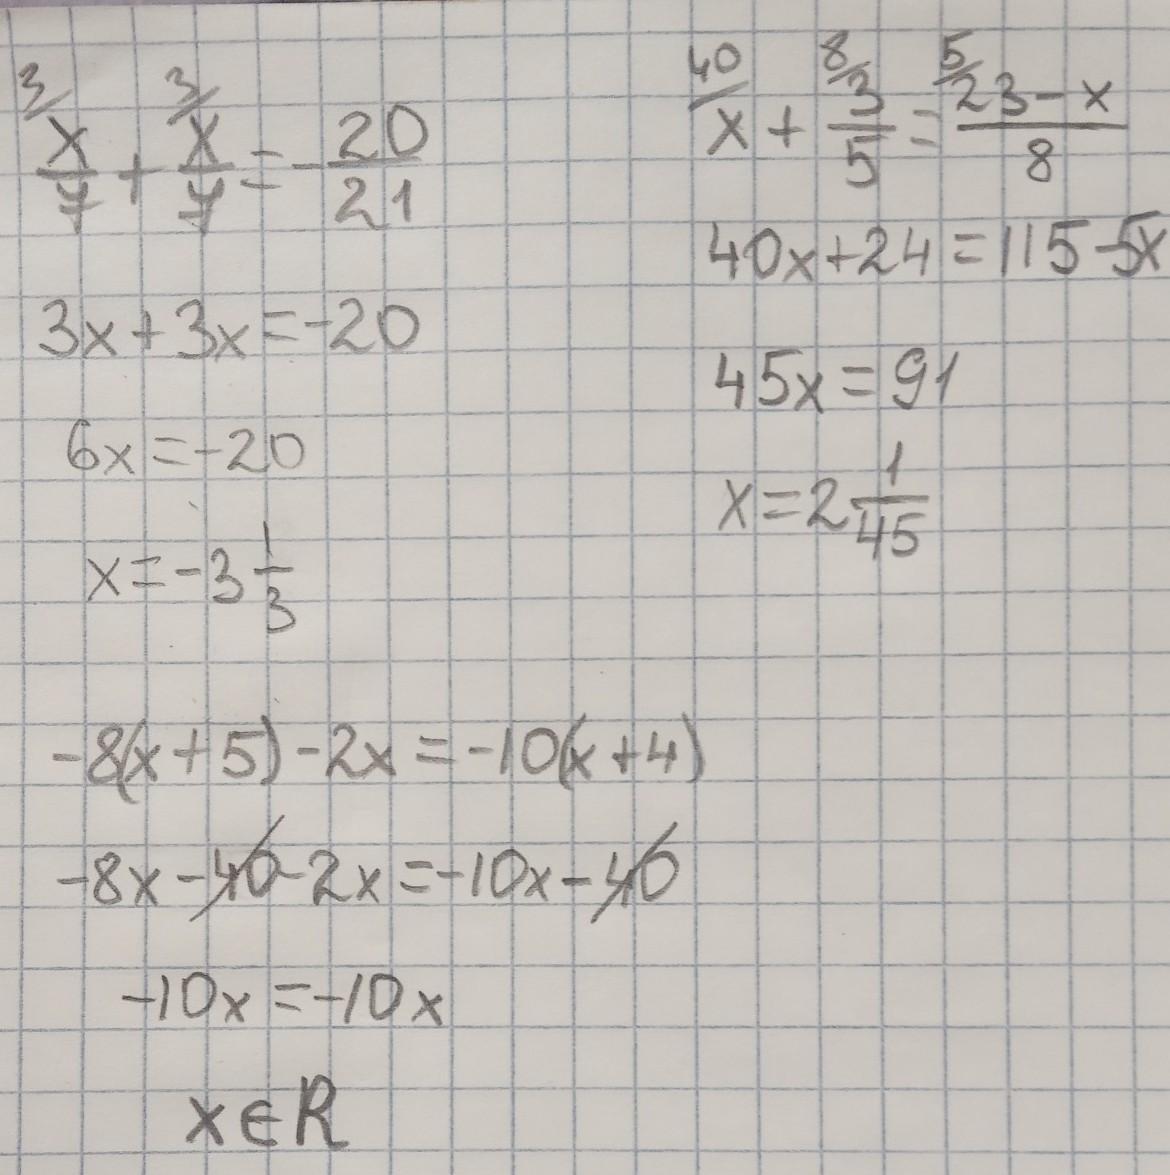 3/ 3/
x/7 + x/7 = - 20/21
3x + 3x = -20
6x = -20
x = -3 1/3
40/ 8/ 5/
x + 3/5 = 23 - x/8
40x + 24 = 115 - 5x
45x = 91
x = 2 1/45
-8(x + 5) - 2x = -10(x + 4)
-8x - 40 - 2x = -10x - 40
-10x = -10x
x ∈ R